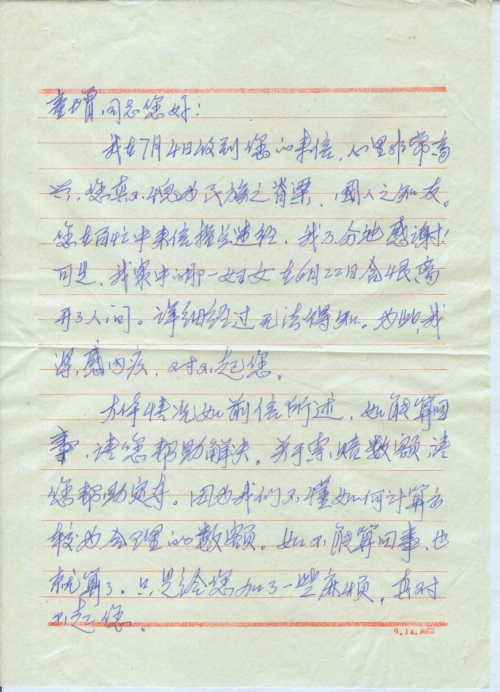 童增同志您好：
我在7月4日收到您的来信，心里非常高
兴，您真不愧为民族之脊梁，国人之知友。
您在百忙中来信指点迷径，我万分地感谢！
可是，我案中的哪一妇女在6月22日含恨离
开了人间。详细经过无法得知。为此，我
深感内疚，对不起您。
如前信所述，如能算回
事，请您帮助解决。关于索赔数额，请
您帮助定夺。因为我们不懂如何计算与
较为合理的数额。如不能算回事，也
就算了。只是给您加了一些麻烦，真对
不起您。